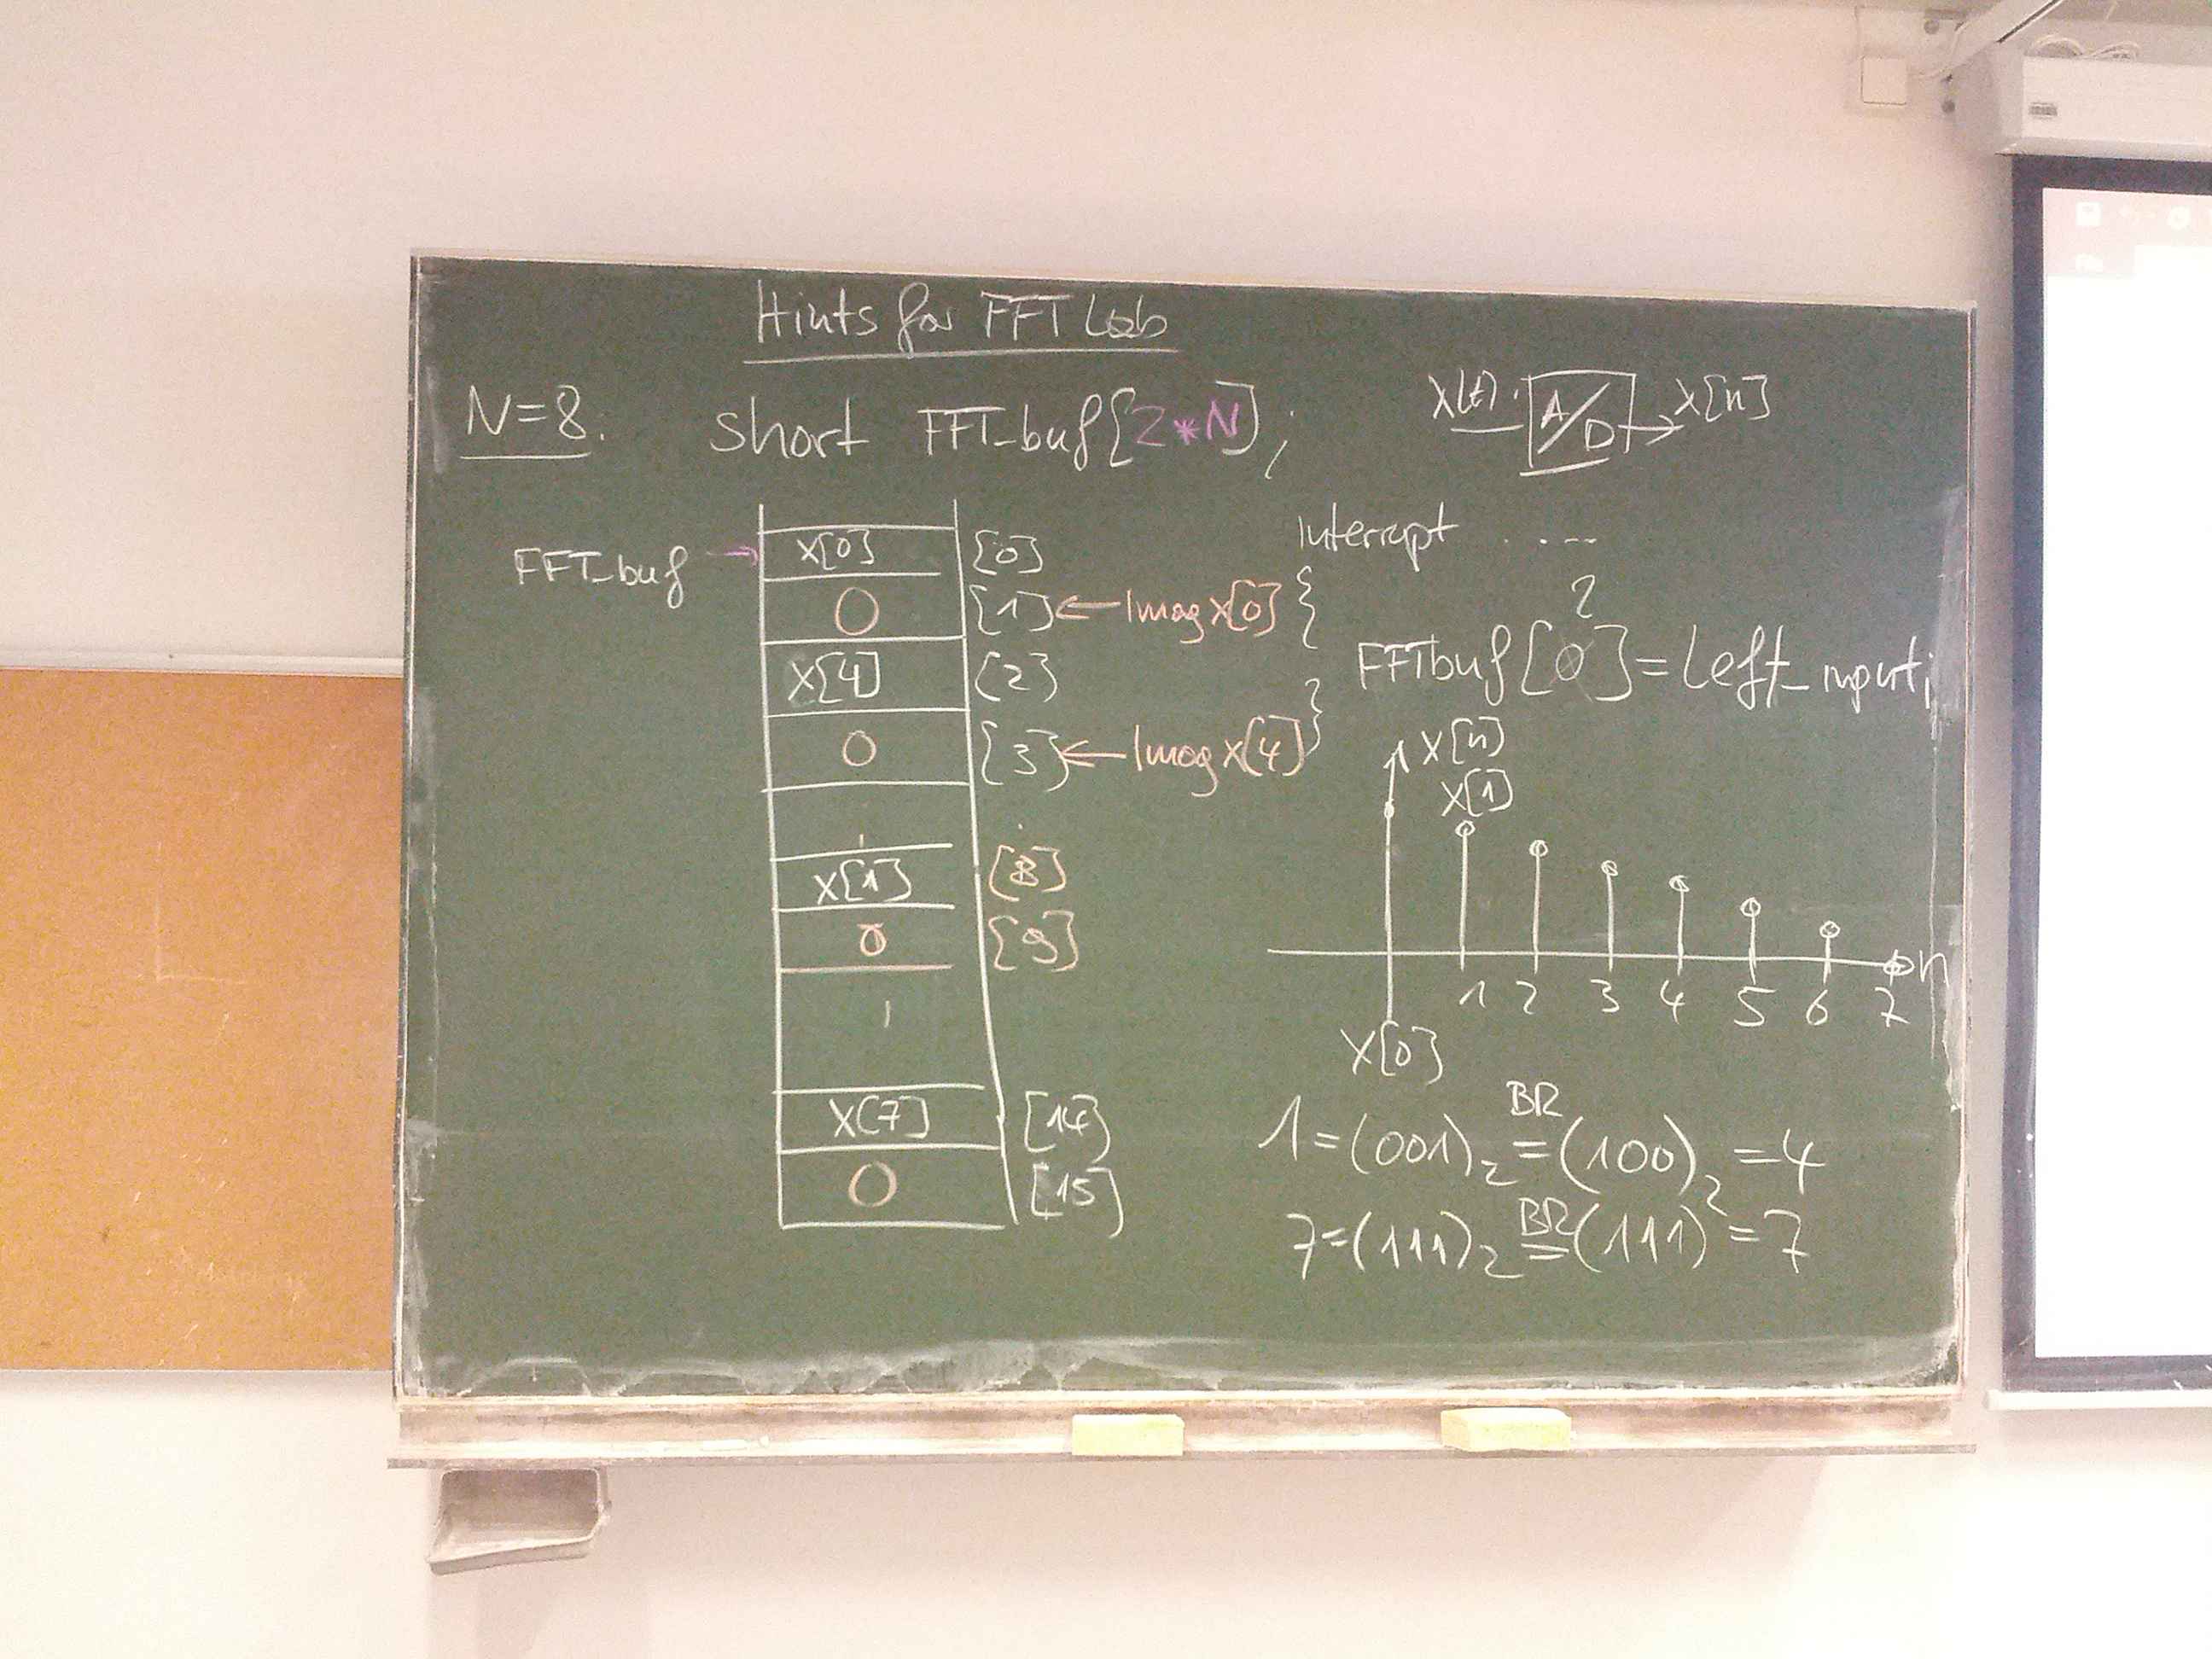 Hints for FFT Lab
N=8:
short FFT_buf[2*N];
x(t)
A/D
x[n]
FFT_buf
x[0] [0]
0 [1] ← Imag x[0]
x[4] [2]
0 [3] ← Imag x[4]
x[1] [8]
0 [9]
x[7] [14]
0 [15]
Interrupt ....
{
?
FFTbuf[0]=Left_input;
}
x[n]
x[1]
n
1 2 3 4 5 6 7
x[0]
BR
1=(001)₂=(100)₂=4
BR
7=(111)₂=(111)²=7